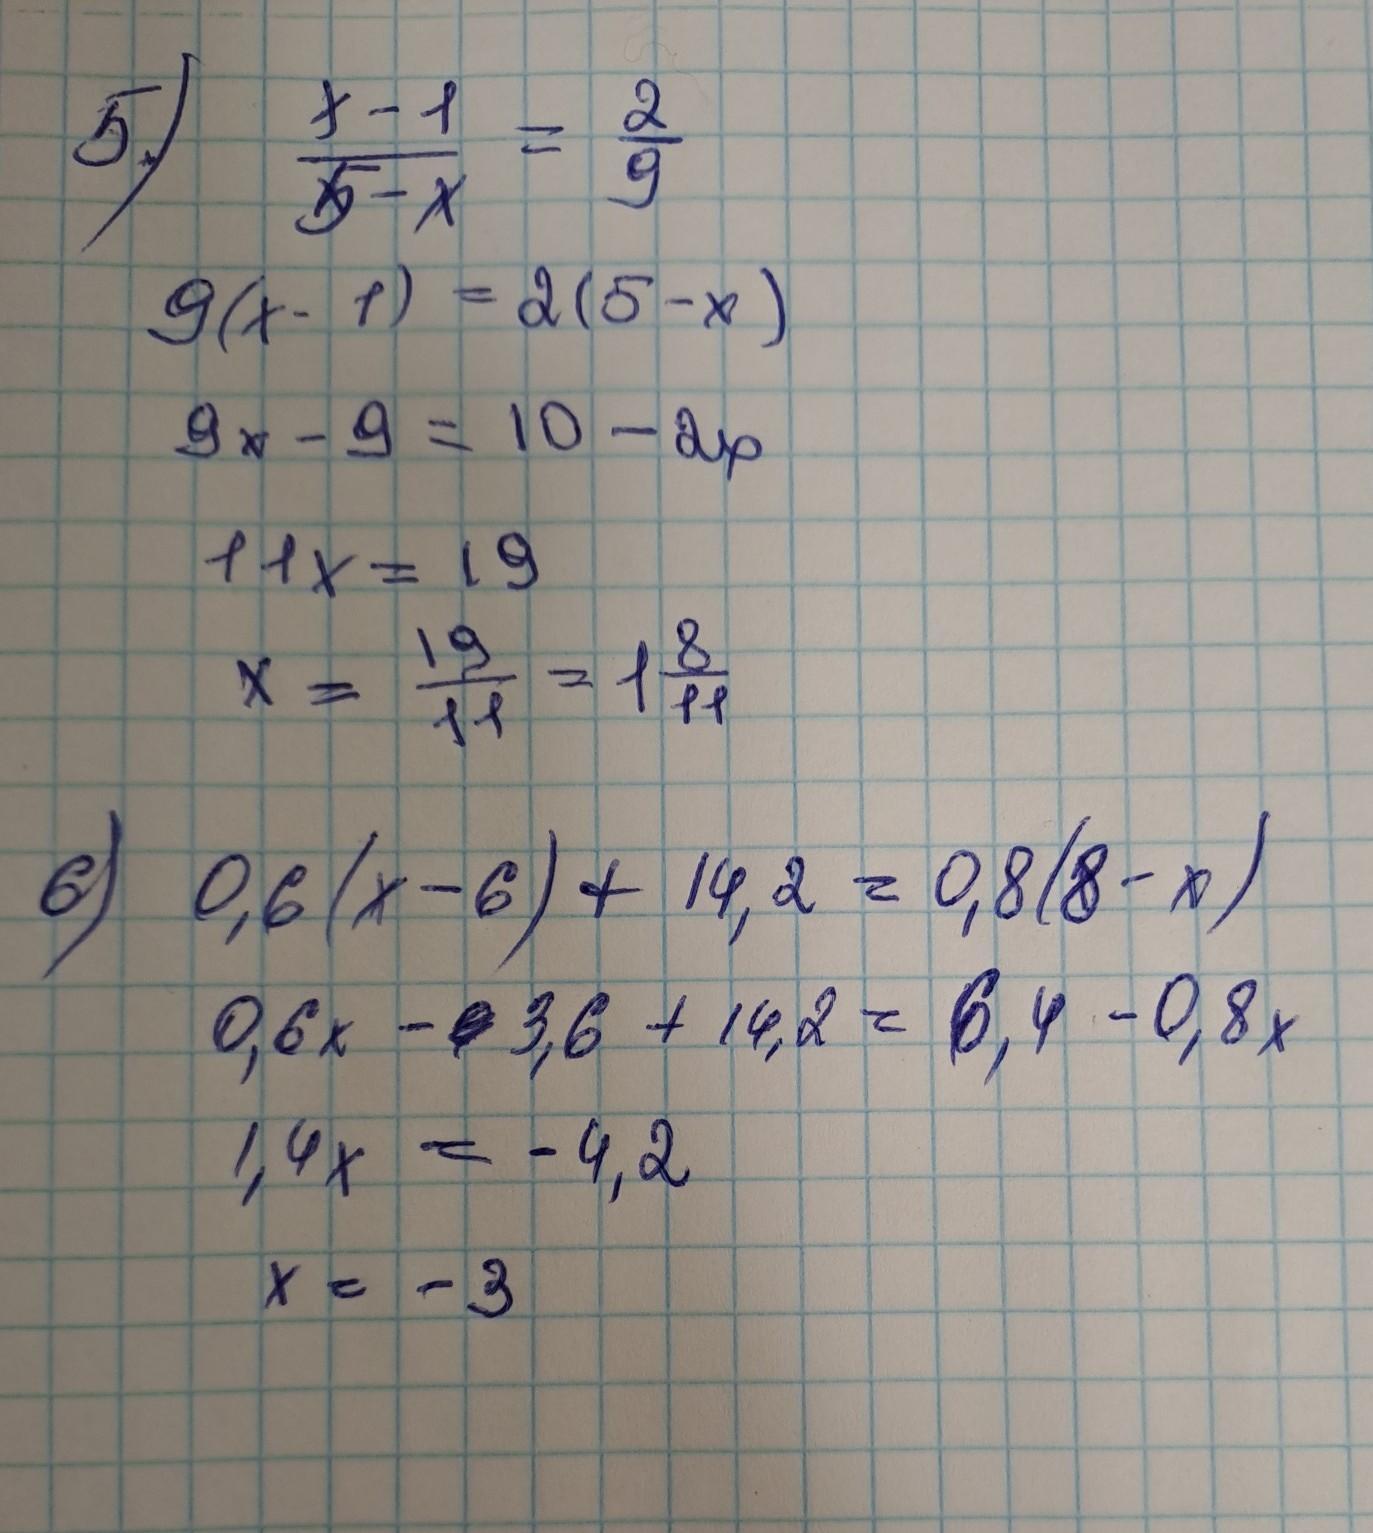 5.) (x - 1)/(5 - x) = 2/9
9(x - 1) = 2(5 - x)
9x - 9 = 10 - 2x
11x = 19
x = 19/11 = 1 8/11
6) 0,6(x - 6) + 14,2 = 0,8(8 - x)
0,6x - 3,6 + 14,2 = 6,4 - 0,8x
1,4x = -4,2
x = -3